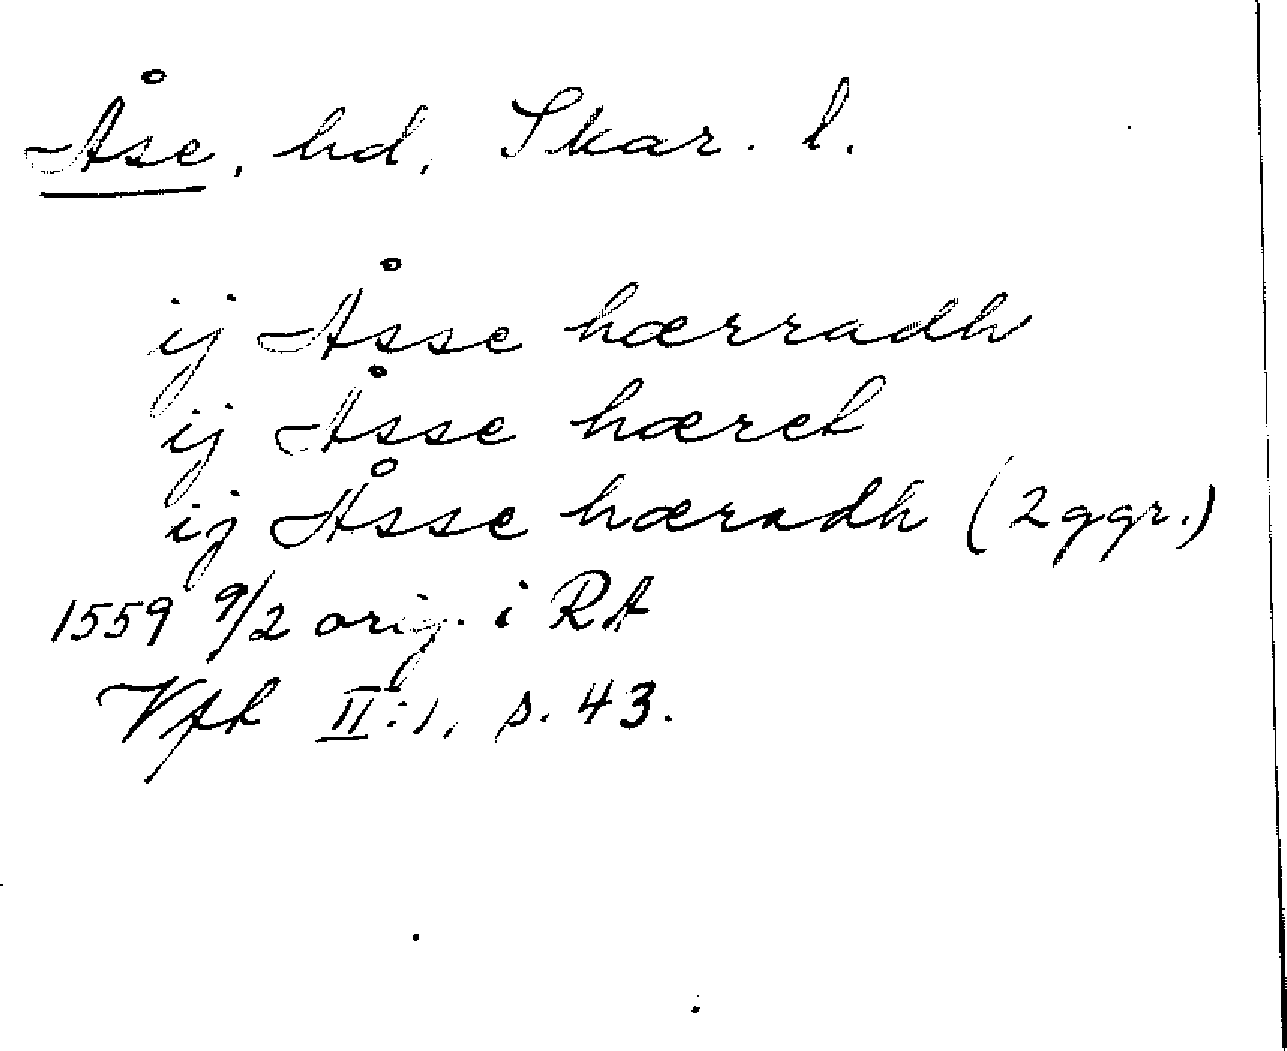 Åse, hd, Skar. l.
ij Åsse hærradh
ij Åsse hæret
ij Åsse hæradh (2 ggr.)
1559 9/2 orig. i RA
Vfh II:1, s. 43.